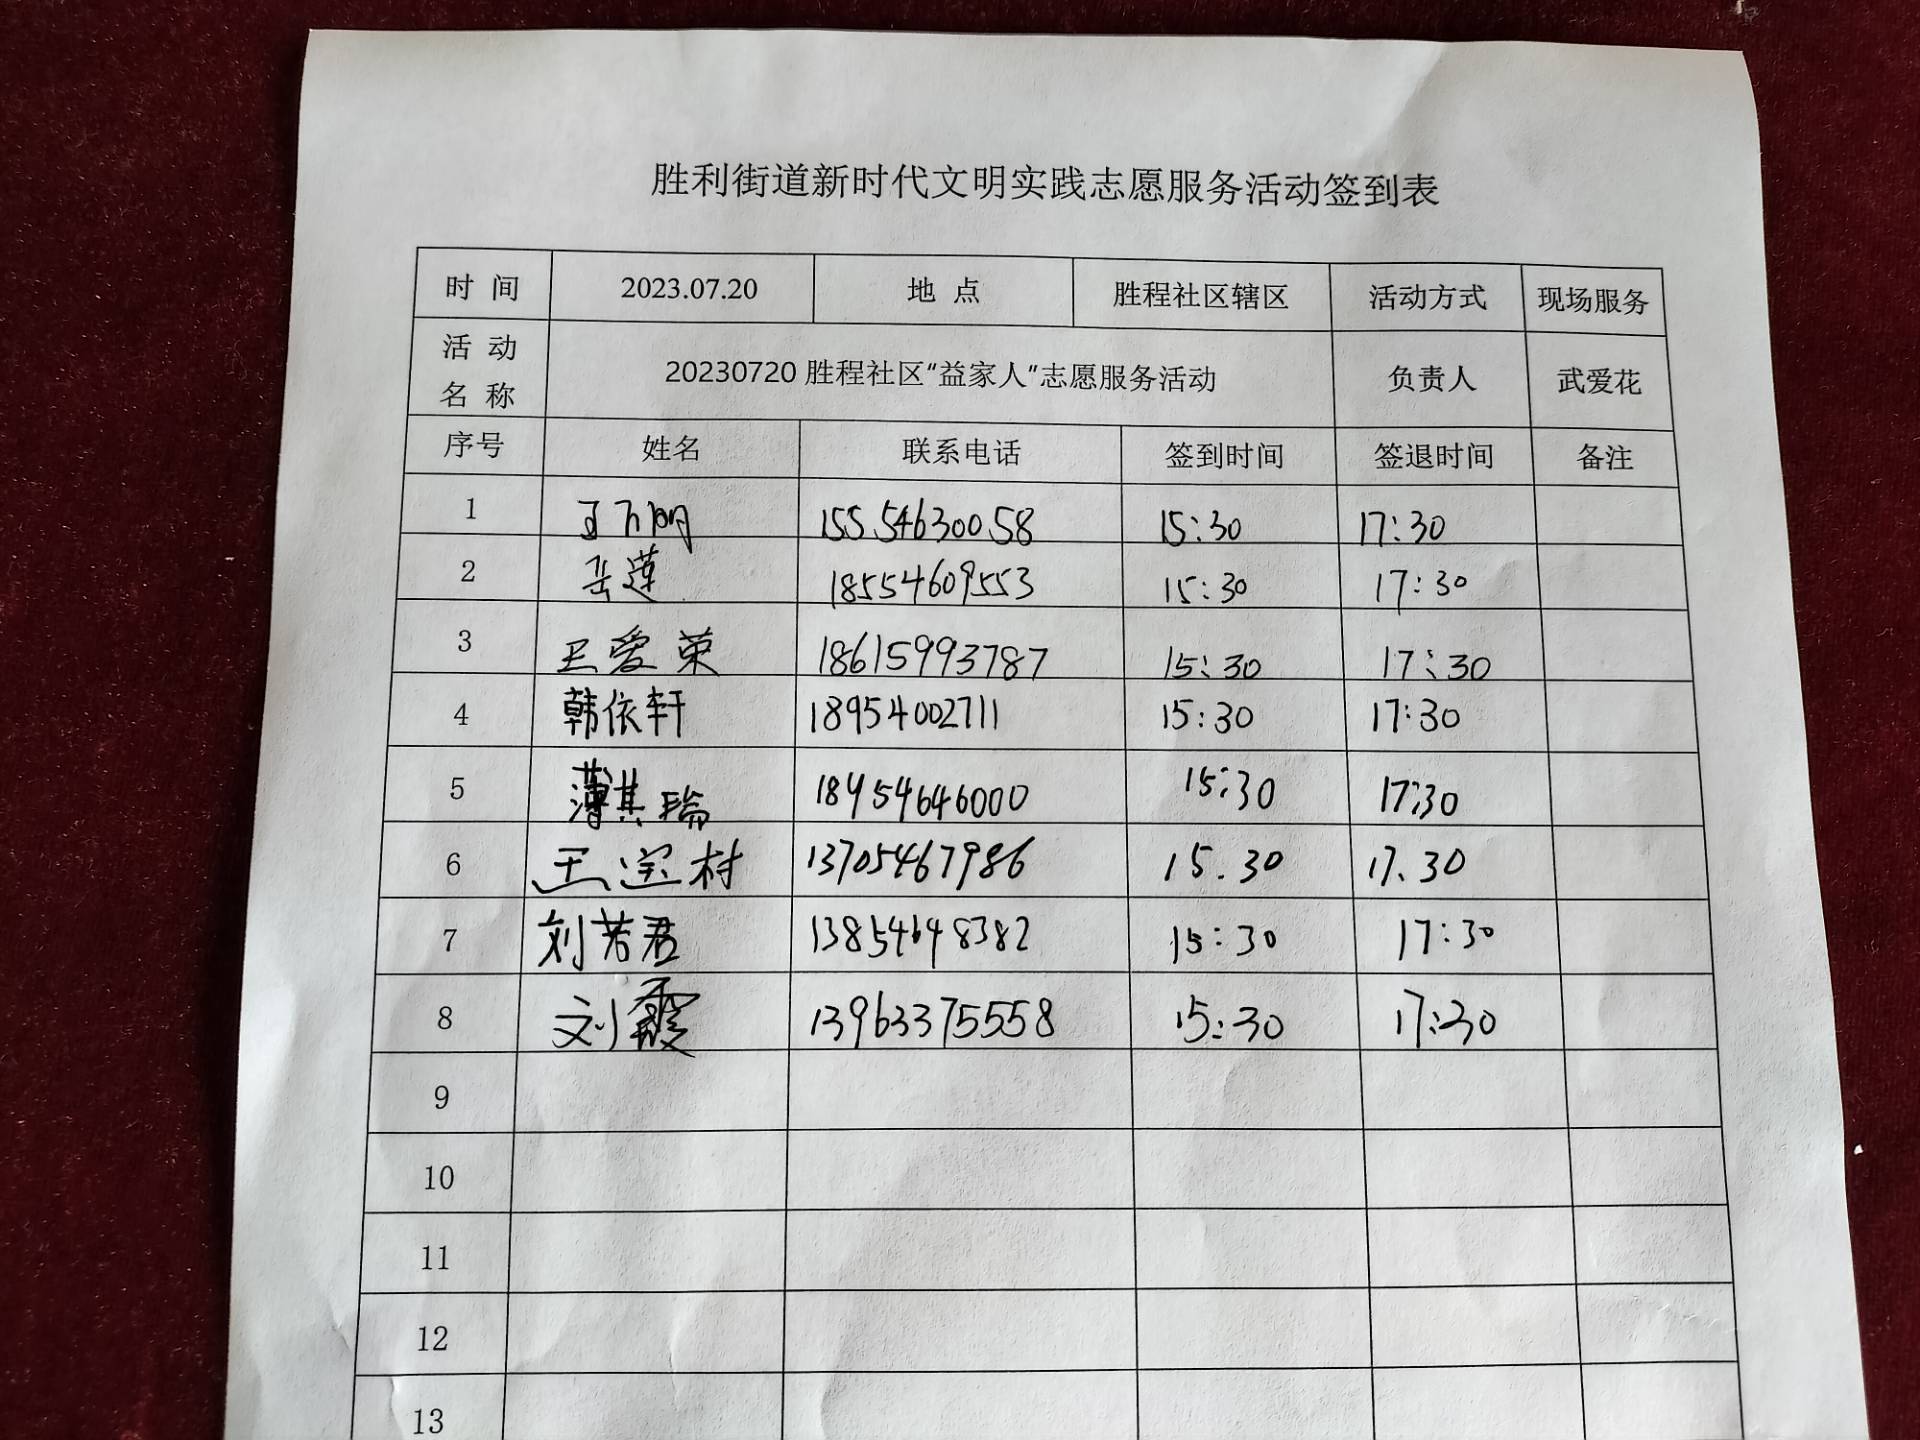 胜利街道新时代文明实践志愿服务活动签到表
时 间 2023.07.20 地 点 胜程社区辖区 活动方式 现场服务
活 动 名 称 20230720胜程社区“益家人”志愿服务活动 负责人 武爱花
序号 姓名 联系电话 签到时间 签退时间 备注
1 15554630058 15:30 17:30
2 岳莲 18554609553 15:30 17:30
3 王爱荣 18615993787 15:30 17:30
4 韩依轩 18954002711 15:30 17:30
5 薄其瑞 18954646000 15:30 17:30
6 王宝村 13705467986 15.30 17.30
7 刘若君 13854648382 15:30 17:30
8 刘霞 13963375558 15:30 17:30
9
10
11
12
13